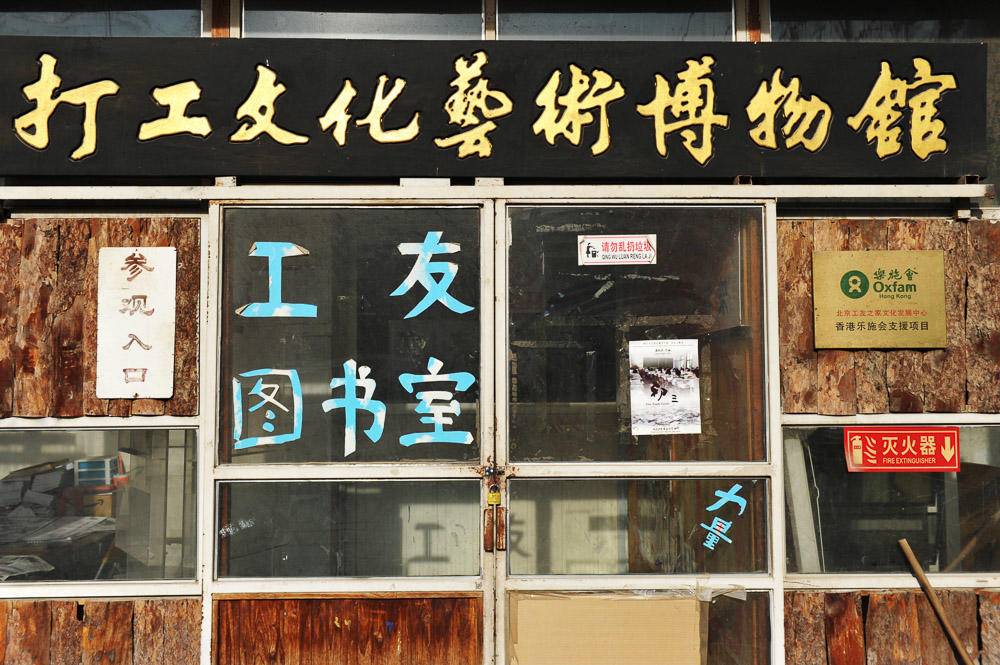 打工文化藝術博物館
参观入口
工友
图书室
请勿乱扔垃圾
QING WU LUAN RENG LA JI
樂施會
Oxfam
Hong Kong
北京工友之家文化发展中心
香港乐施会支援项目
灭火器
FIRE EXTINGUISHER
力量